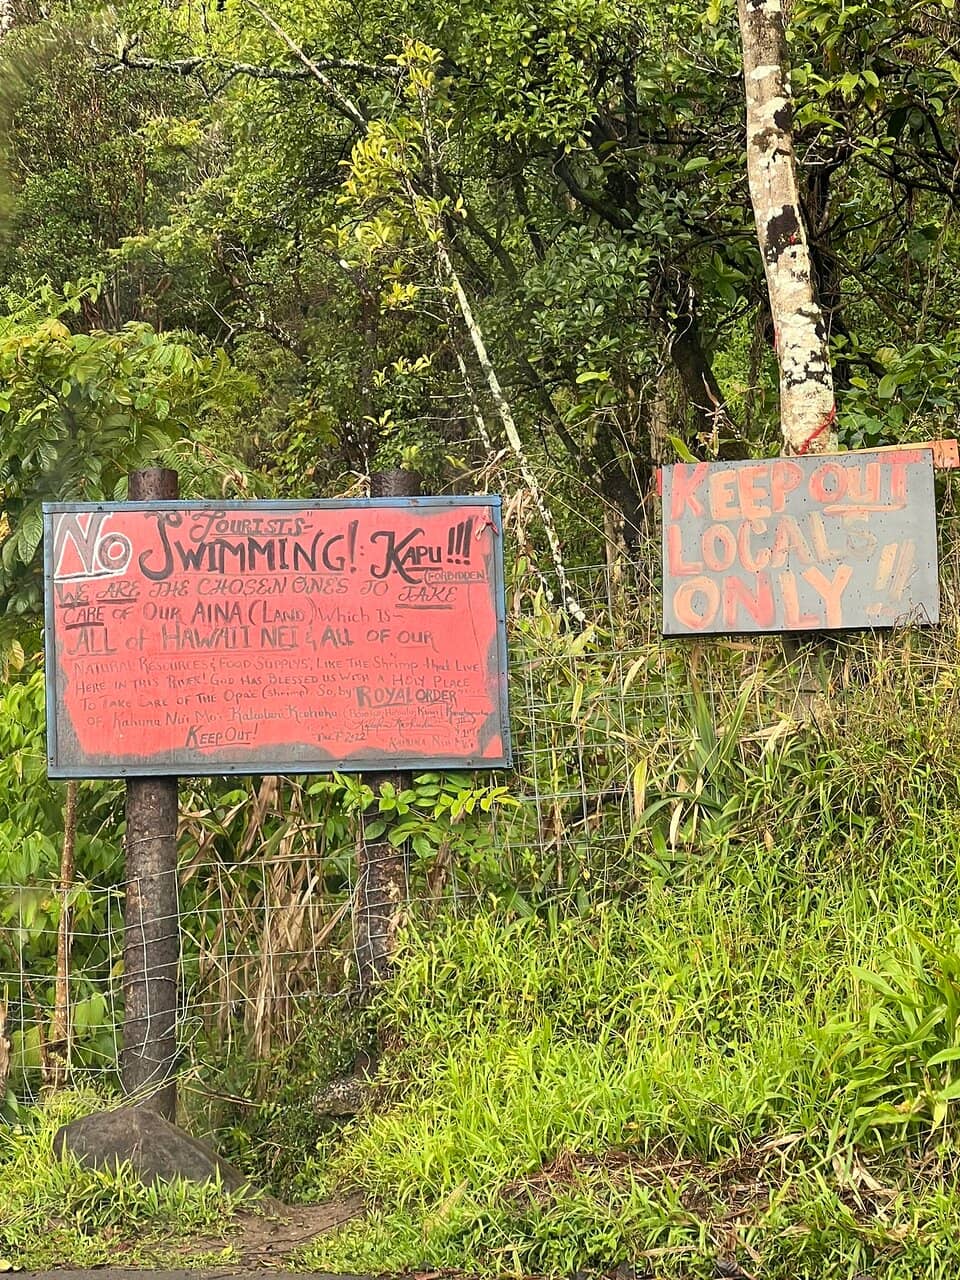 No "Tourists"
Swimming! Kapu!!!
(Forbidden!)
We are the chosen ones to take
care of our Aina (Land) which is~
All of Hawaii Nei & All of our
Natural Resources & Food Supply, Like the Shrimp that Live
Here in this River! God has blessed us with a Holy Place
To take care of the Opae (shrimp). So, by Royal Order
of Kahuna Nui Mo·
Keep Out!
Kahuna Nui Mo·
KEEP OUT
LOCALS
ONLY!!!